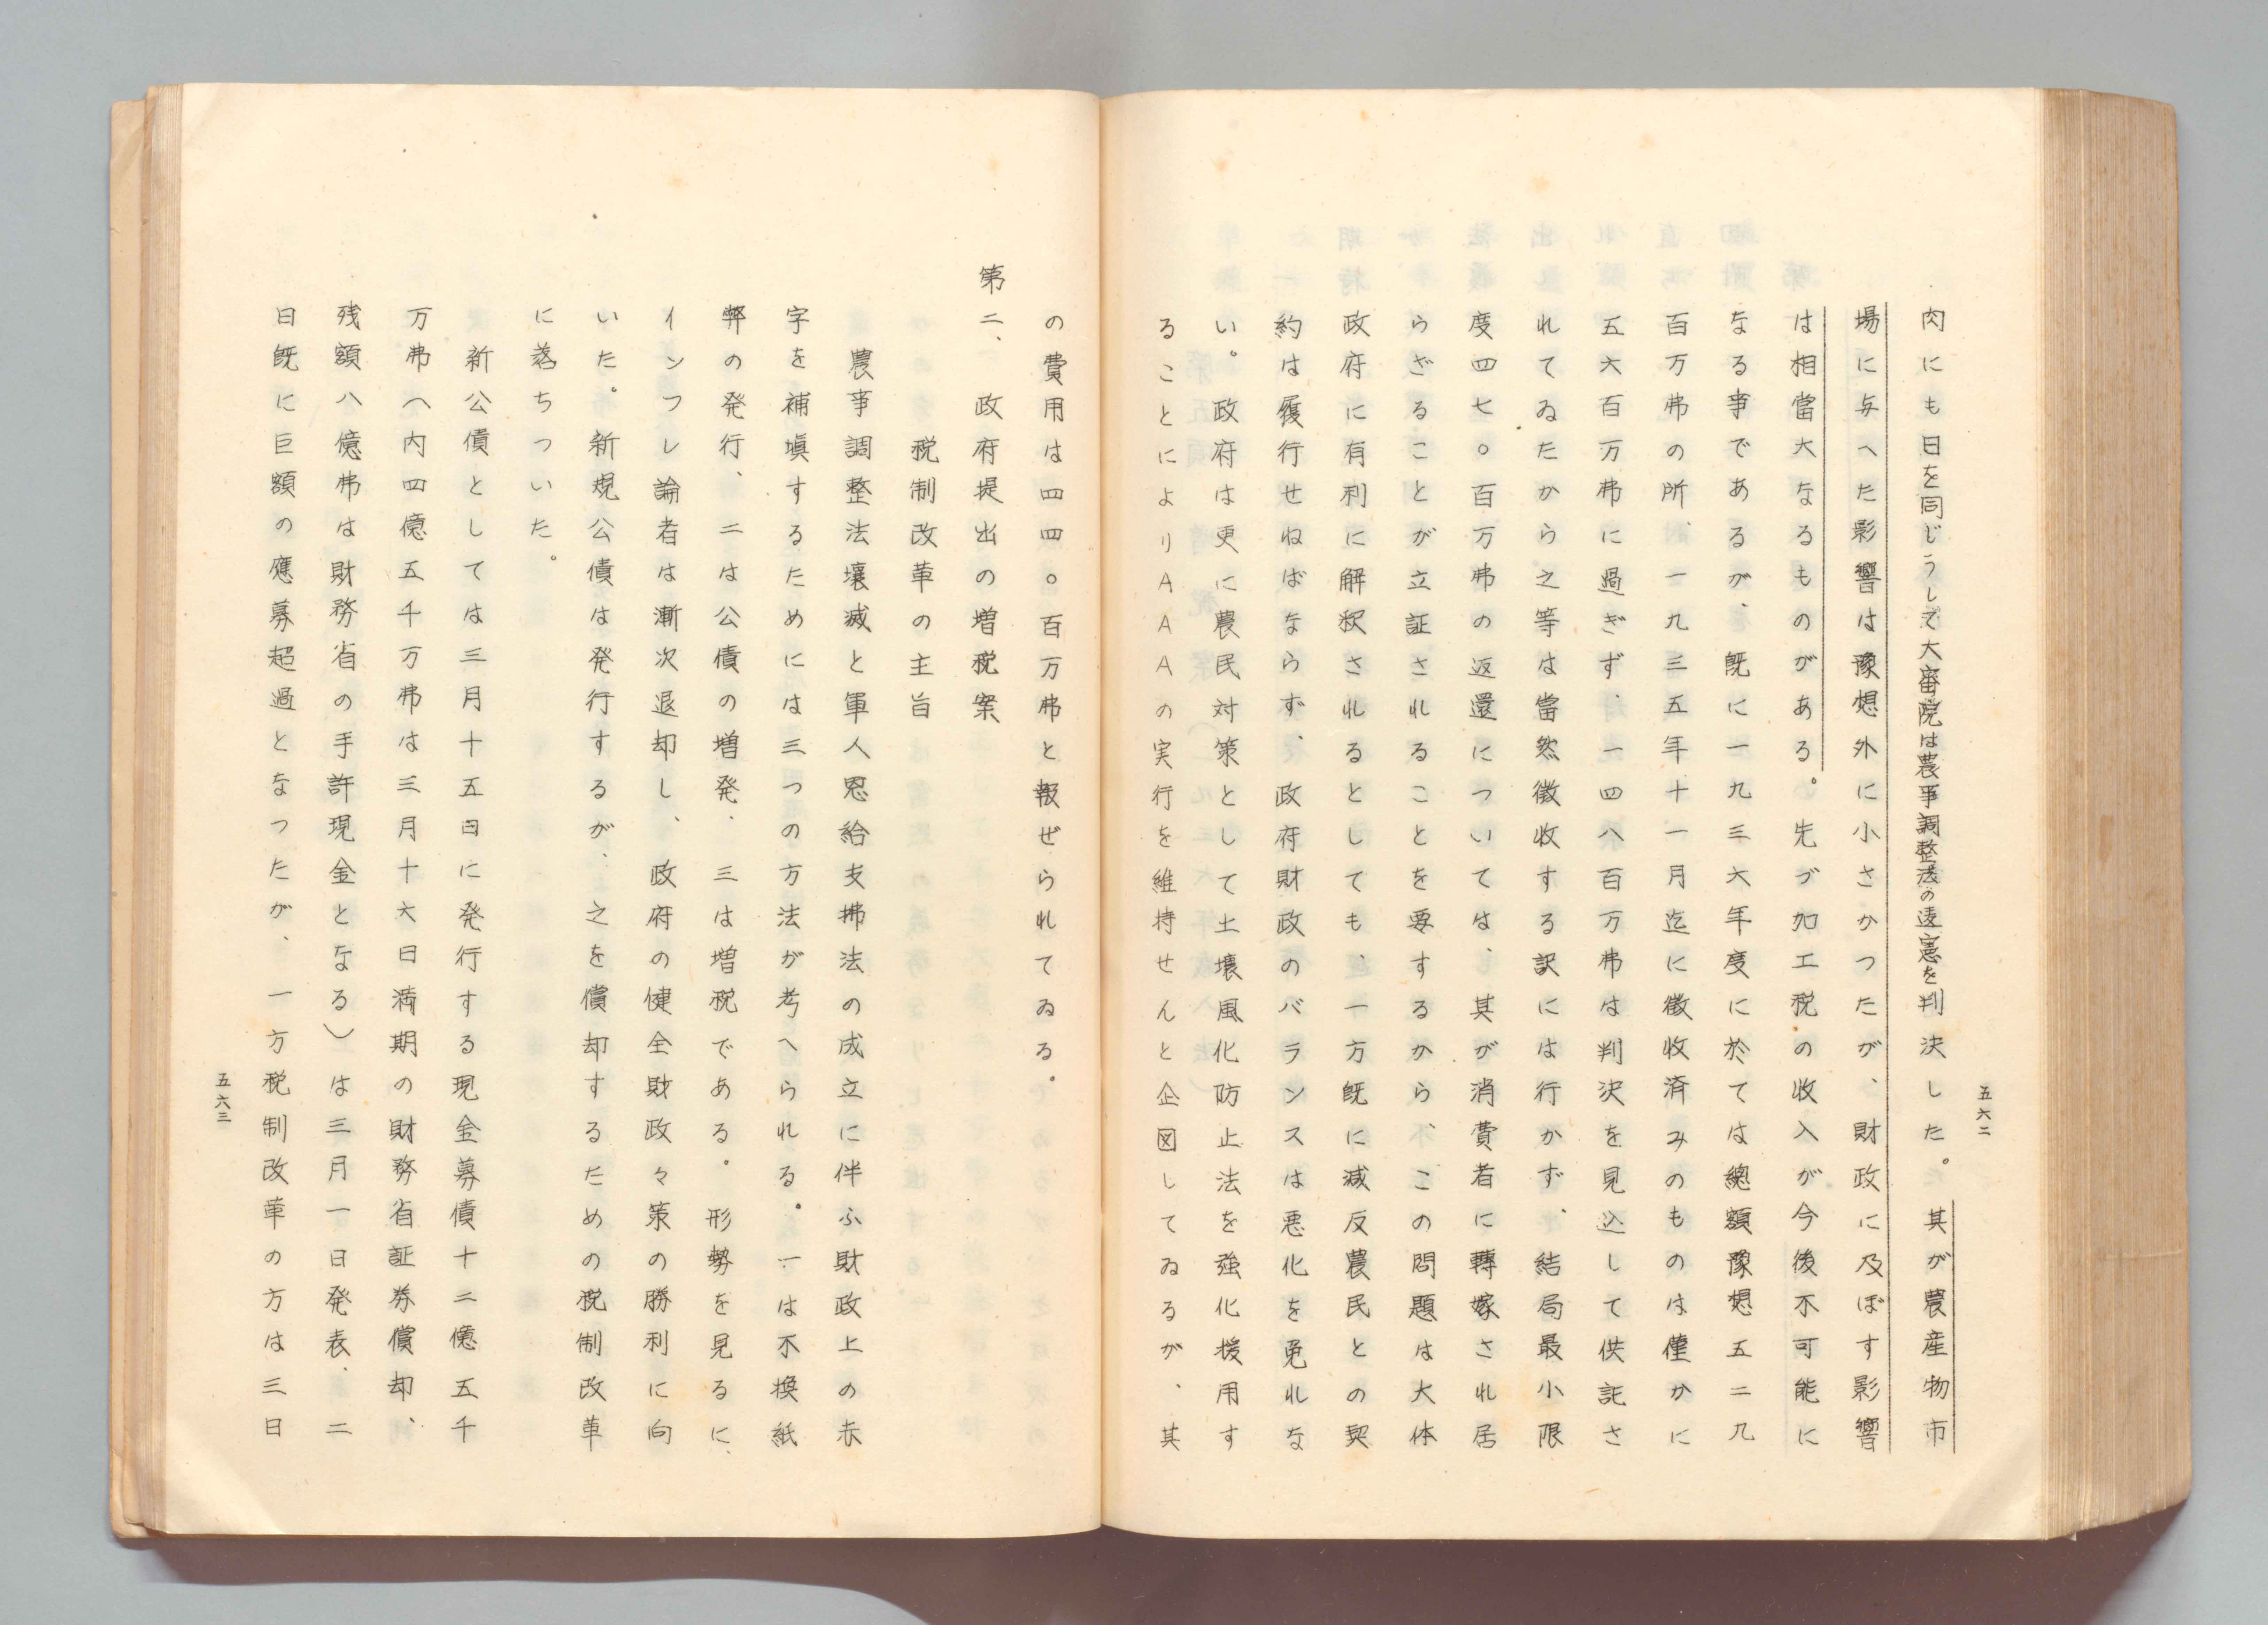 五六二
内にも日を同じうして大審院は農事調整法の違憲を判決した。其が農産物市
場に与へた影響は豫想外に小さかつたが、財政に及ぼす影響
は相當大なるものがある。先づ加工税の收入が今後不可能に
なる事であるが、既に一九三六年度に於ては總額豫想五二九
百万弗の所、一九三五年十一月迄に徴收済みのものは僅かに
五六百万弗に過ぎず、一四八百万弗は判決を見込して供託さ
れてゐたから之等は當然徴收する訳には行かず、結局最小限
度四七〇百万弗の返還については、其が消費者に轉嫁され居
らざることが立証されることを要するから、この問題は大体
政府に有利に解釈されるとしても、一方既に減反農民との契
約は履行せねばならず、政府財政のバランスは悪化を免れな
い。政府は更に農民対策として土壌風化防止法を強化援用す
ることによりAAAの実行を維持せんと企図してゐるが、其
の費用は四四〇百万弗と報ぜられてゐる。
第二、政府提出の増税案
税制改革の主旨
農事調整法壊滅と軍人恩給支拂法の成立に伴ふ財政上の赤
字を補塡するためには三つの方法が考へられる。一は不換紙
弊の発行、二は公債の増発、三は増税である。形勢を見るに、
インフレ論者は漸次退却し、政府の健全財政々策の勝利に向
いた。新規公債は発行するが、之を償却するための税制改革
に落ちついた。
新公債としては三月十五日に発行する現金募債十二億五千
万弗（内四億五千万弗は三月十六日満期の財務省証券償却、
残額八億弗は財務省の手許現金となる）は三月一日発表、二
日既に巨額の應募超過となつたが、一方税制改革の方は三日
五六三